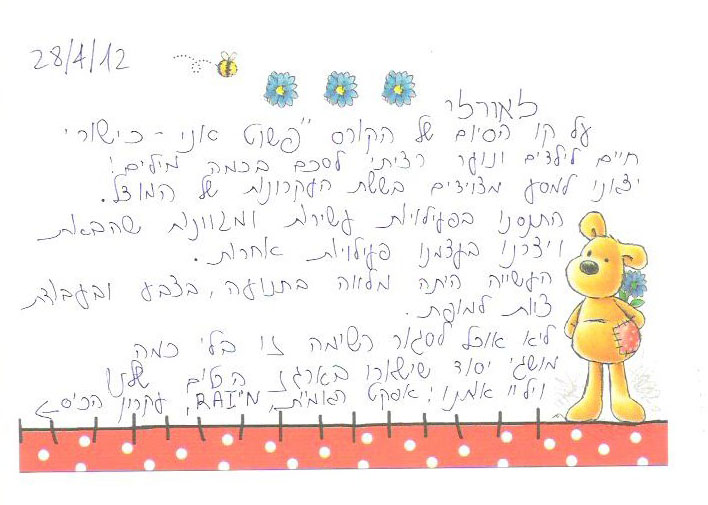 28/4/12
לאורלי
על קו הסיום של הקורס "פשוט אני - כישורי
חיים לילדים ונוער רציתי לסכם בכמה מילים!
יצאנו למסע מצוידים בששת העקרונות של המודל.
התנסנו בפעילויות עשירות ומגוונות שהבאת
ויצרנו בעצמנו פעילויות אחרות.
העשייה היתה מלאה בתנועה, בצבע ובעבודת
צוות למופת.
לא אוכל לסגור רשימה זו בלי כמה
מושגי יסוד שישארו בארגז הכלים שלנו
אמנו! אפקט RAI, עקרון הכיס